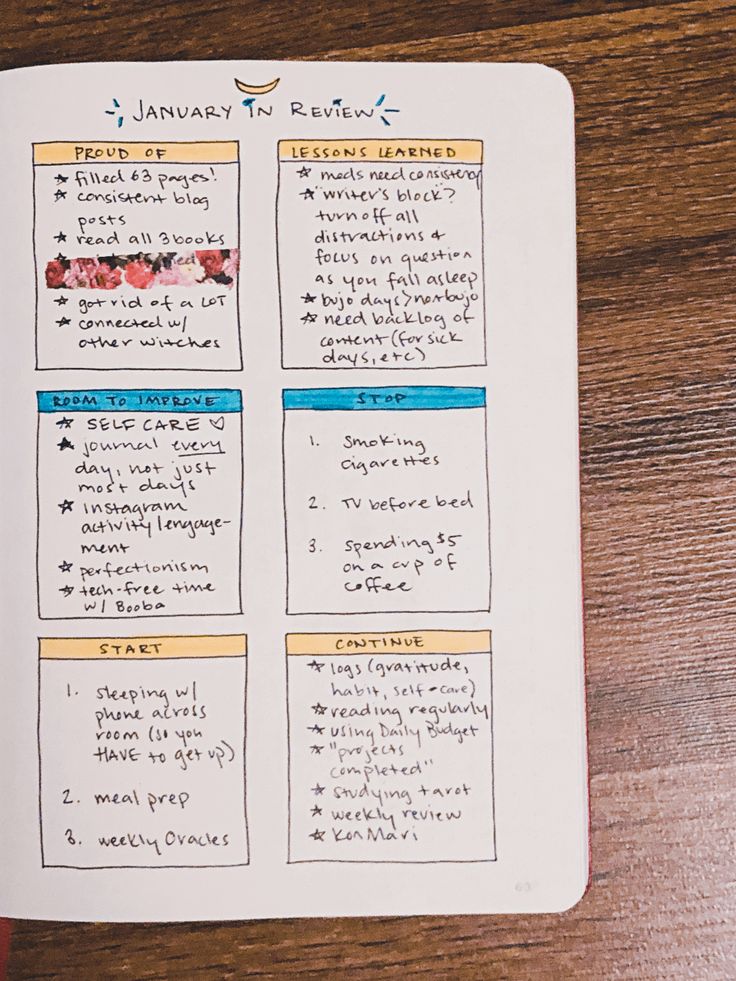 JANUARY IN REVIEW
PROUD OF
★ filled 63 pages!
★ consistent blog
posts
★ read all 3 books
★
★ got rid of a LOT
★ connected w/
other witches
LESSONS LEARNED
★ meds need consistency
★ "writer's block"?
turn off all
distractions &
focus on question
as you fall asleep
★ bujo days > not bujo
★ need backlog of
content (for sick
days, etc)
ROOM TO IMPROVE
★ SELF CARE ♡
★ journal every
day, not just
most days
★ Instagram
activity/engage-
ment
★ perfectionism
★ tech-free time
w/ Booba
STOP
1. Smoking
cigarettes
2. TV before bed
3. Spending $5
on a cup of
coffee
START
1. Sleeping w/
phone across
room (so you
HAVE to get up)
2. meal prep
3. weekly Oracles
CONTINUE
★ logs (gratitude,
habit, self-care)
★ reading regularly
★ using Daily Budget
★ "projects
completed"
★ studying tarot
★ weekly review
★ KonMari
63